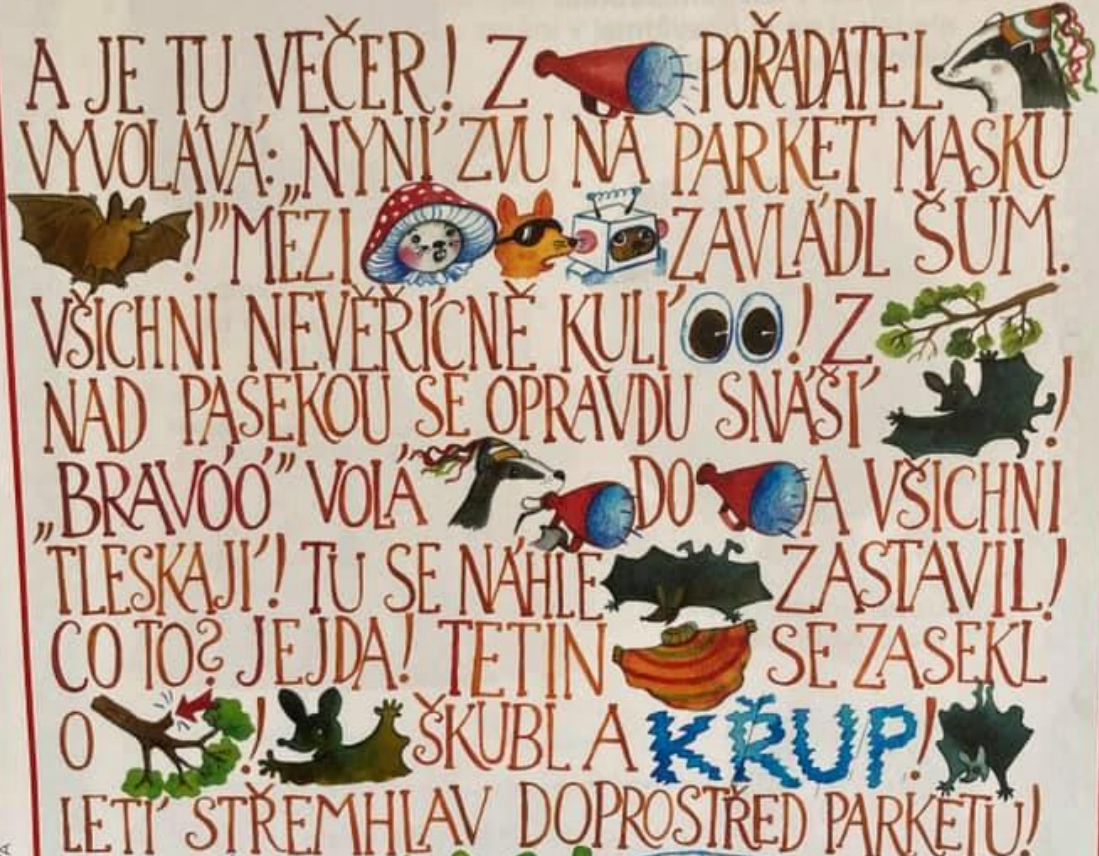 A JE TU VEČER! Z POŘADATEL
VYVOLÁVÁ: „NYNÍ ZVU NA PARKET MASKU
!" MEZI ZAVLÁDL ŠUM.
VŠICHNI NEVĚŘÍCNĚ KULÍ ! Z
NAD PASEKOU SE OPRAVDU SNÁŠÍ !
„BRAVÓÓ" VOLÁ DO A VŠICHNI
TLESKAJÍ! TU SE NÁHLE ZASTAVIL!
CO TO? JEJDA! TETIN SE ZASEKL
O ! ŠKUBL A KŘUP!
LETÍ STŘEMHLAV DOPROSTŘED PARKETU!